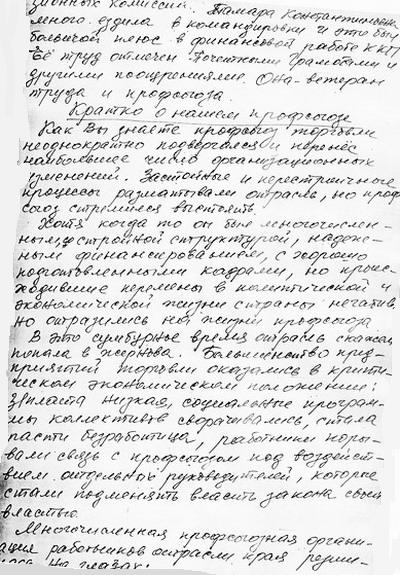 ционных комиссий. Тамара Константиновна
много ездила в командировки и это был
большой плюс в финансовой работе ККП
Её труд отмечен Почетными грамотами и
другими поощрениями. Она - ветеран
труда и профсоюза.
Кратко о нашем профсоюзе
Как Вы знаете профсоюз торговли
неоднократно подвергался и перенёс
наибольшее число организационных
изменений. Застойные и перестроечные
процессы разматывали отрасль, но проф
союз стремился выстоять.
Хотя когда то он был многочислен-
ным, со стройной структурой, надеж-
ным финансированием, с хорошо
подготовленными кадрами, но проис-
ходившие перемены в политической и
экономической жизни страны негатив
но отразились на жизни профсоюза
В это сумбурное время отрасль скажем
попала в жернова. Большинство пред-
приятий торговли оказались в крити-
ческом экономическом положении:
з/плата низкая, социальные програм-
мы коллективов сворачивались, стала
расти безработица, работники поры-
вали связь с профсоюзом под воздейст-
вием отдельных руководителей, которые
стали подменять власть закона своей
властью.
Многочисленная профсоюзная органи-
ация работников отрасли края
на глазах: